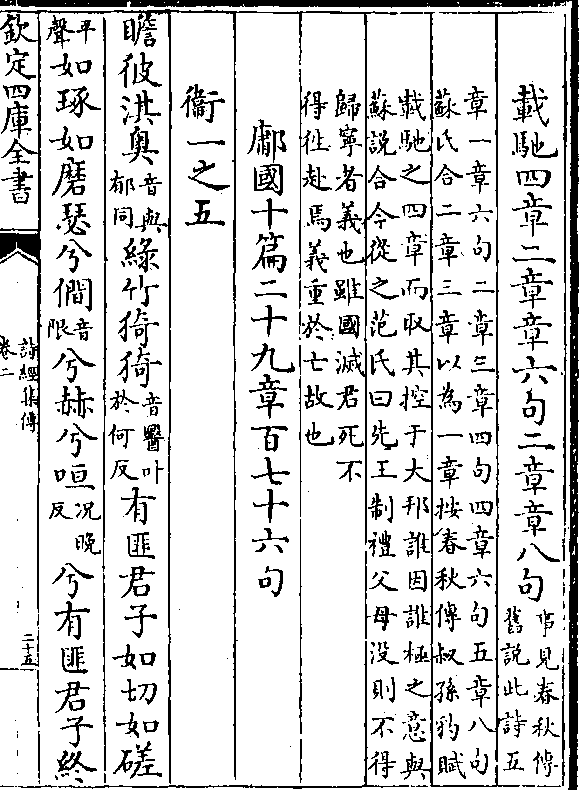 載馳四章二章章六句二章章八句事見春秋傳舊說此詩五
章一章六句二章三章四句四章六句五章八句
蘇氏合二章三章以為一章按春秋傳叔孫豹賦
載馳之四章而取其控于大邦誰因誰極之意與
蘇說合今從之范氏曰先王制禮父母没則不得
歸寧者義也雖國滅君死不
得徃赴焉義重於亡故也
鄘國十篇二十九章百七十六句
衞一之五
瞻彼淇奥音與郁同綠竹猗猗音醫叶於何反有匪君子如切如磋
平聲如琢如磨瑟兮僩音限兮赫兮咺况晚反兮有匪君子終
欽定四庫全書
詩經集傳
卷二
二十五